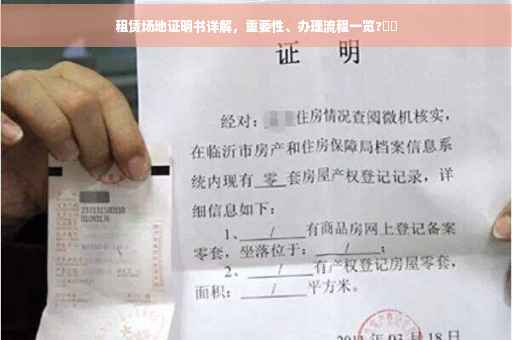 租赁场地证明书详解，重要性、办理流程一览?
证 明
经对：住房情况查阅微机核实，
在临沂市房产和住房保障局档案信息系
统内现有 零 套房屋产权登记记录，详
细信息如下：
1、 / 有商品房网上登记备案
零套，坐落位于： / ；
2、 / 有产权登记房屋零套，
面积： / 平方米。
年 03 月 18 日